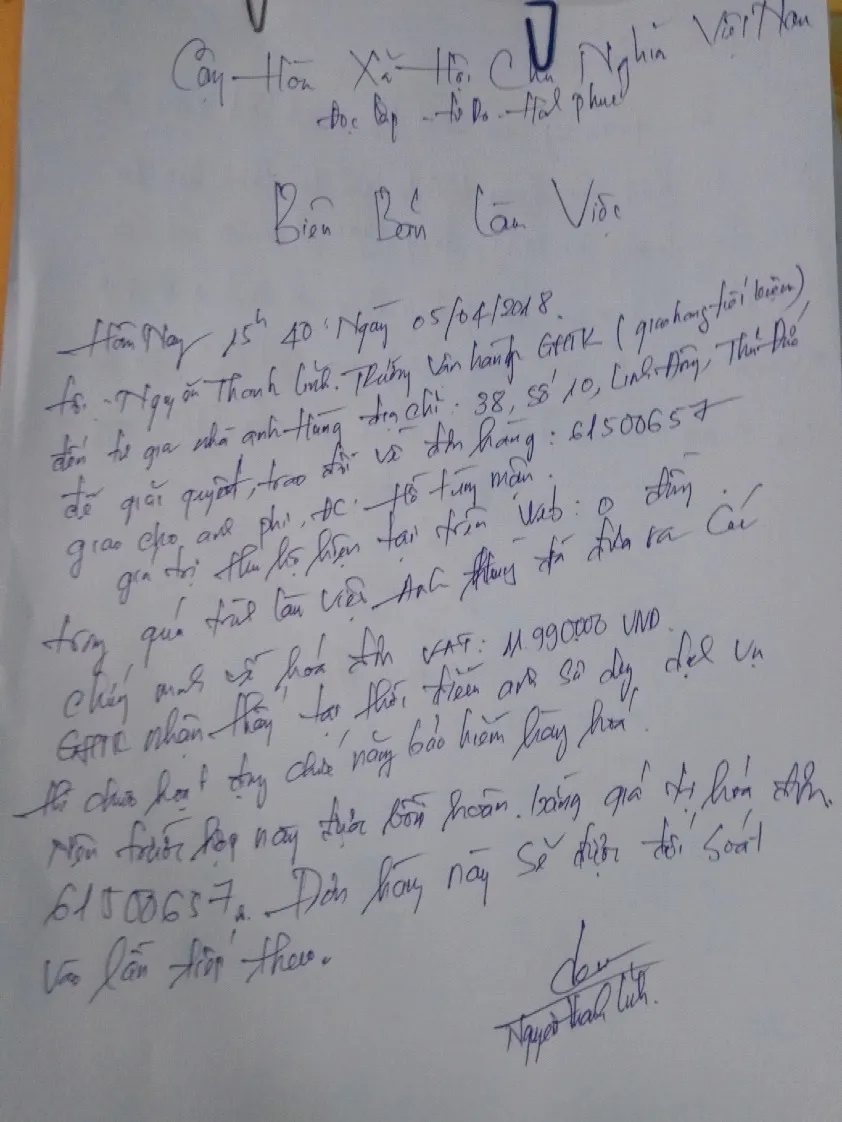 Cộng Hòa Xã Hội Chủ Nghĩa Việt Nam
Độc lập - Tự Do - Hạnh phúc
Biên Bản Làm Việc
Hôm Nay 15h 40' Ngày 05/04/2018.
Tôi: Nguyễn Thanh Linh. Trưởng Vận hành GHTK (giao hàng tiết kiệm)
đến tư gia nhà anh Hùng địa chỉ: 38, Số 10, Linh Đông, Thủ Đức
để giải quyết, trao đổi về đơn hàng: 61500657
giao cho anh phi, ĐC: Hồ tùng mậu.
giá trị thu hộ hiện tại trên Web: 0 đồng.
trong quá trình làm việc Anh Hùng đã đưa ra các
chứng minh về hoá đơn VAT: 11.990.000 VND.
GHTK nhận thấy tại thời điểm anh sử dụng dịch vụ
thì chưa hoạt động chức năng bảo hiểm hàng hoá.
Nên trước hợp này được bồi hoàn bằng giá trị hoá đơn.
61500657. Đơn hàng này sẽ được đối soát
vào lần tiếp theo.
Nguyễn Thanh Linh.